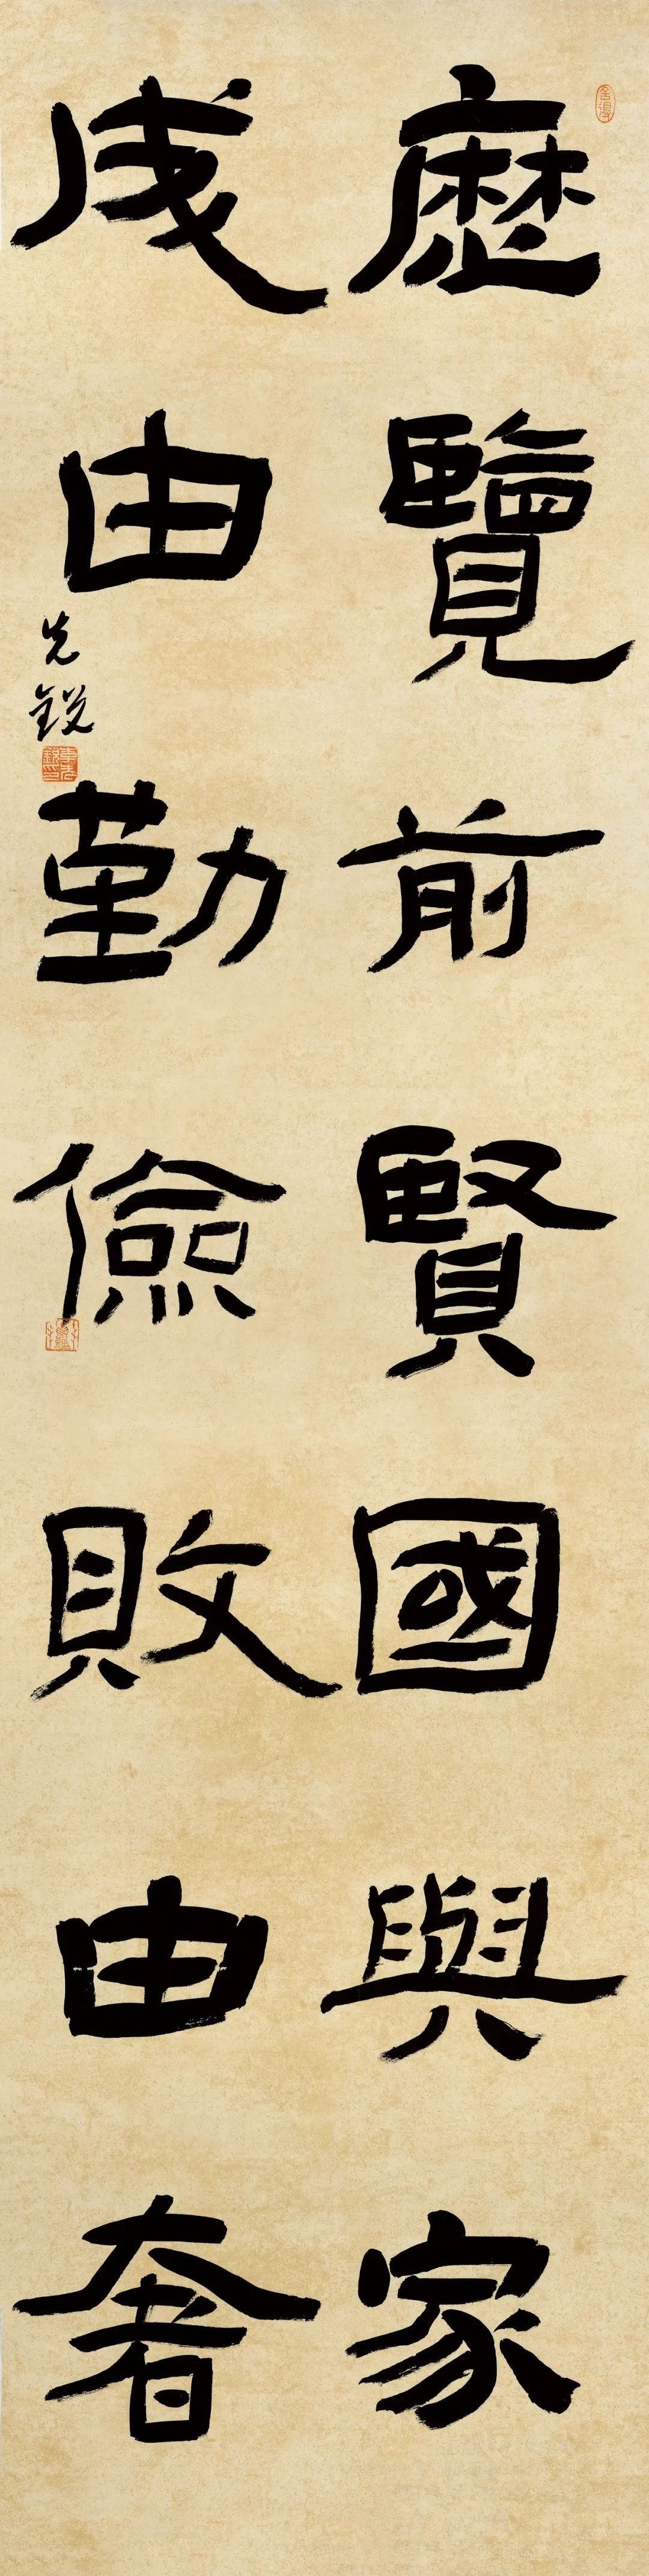 歷覽前賢國與家
成由勤儉敗由奢
先銳